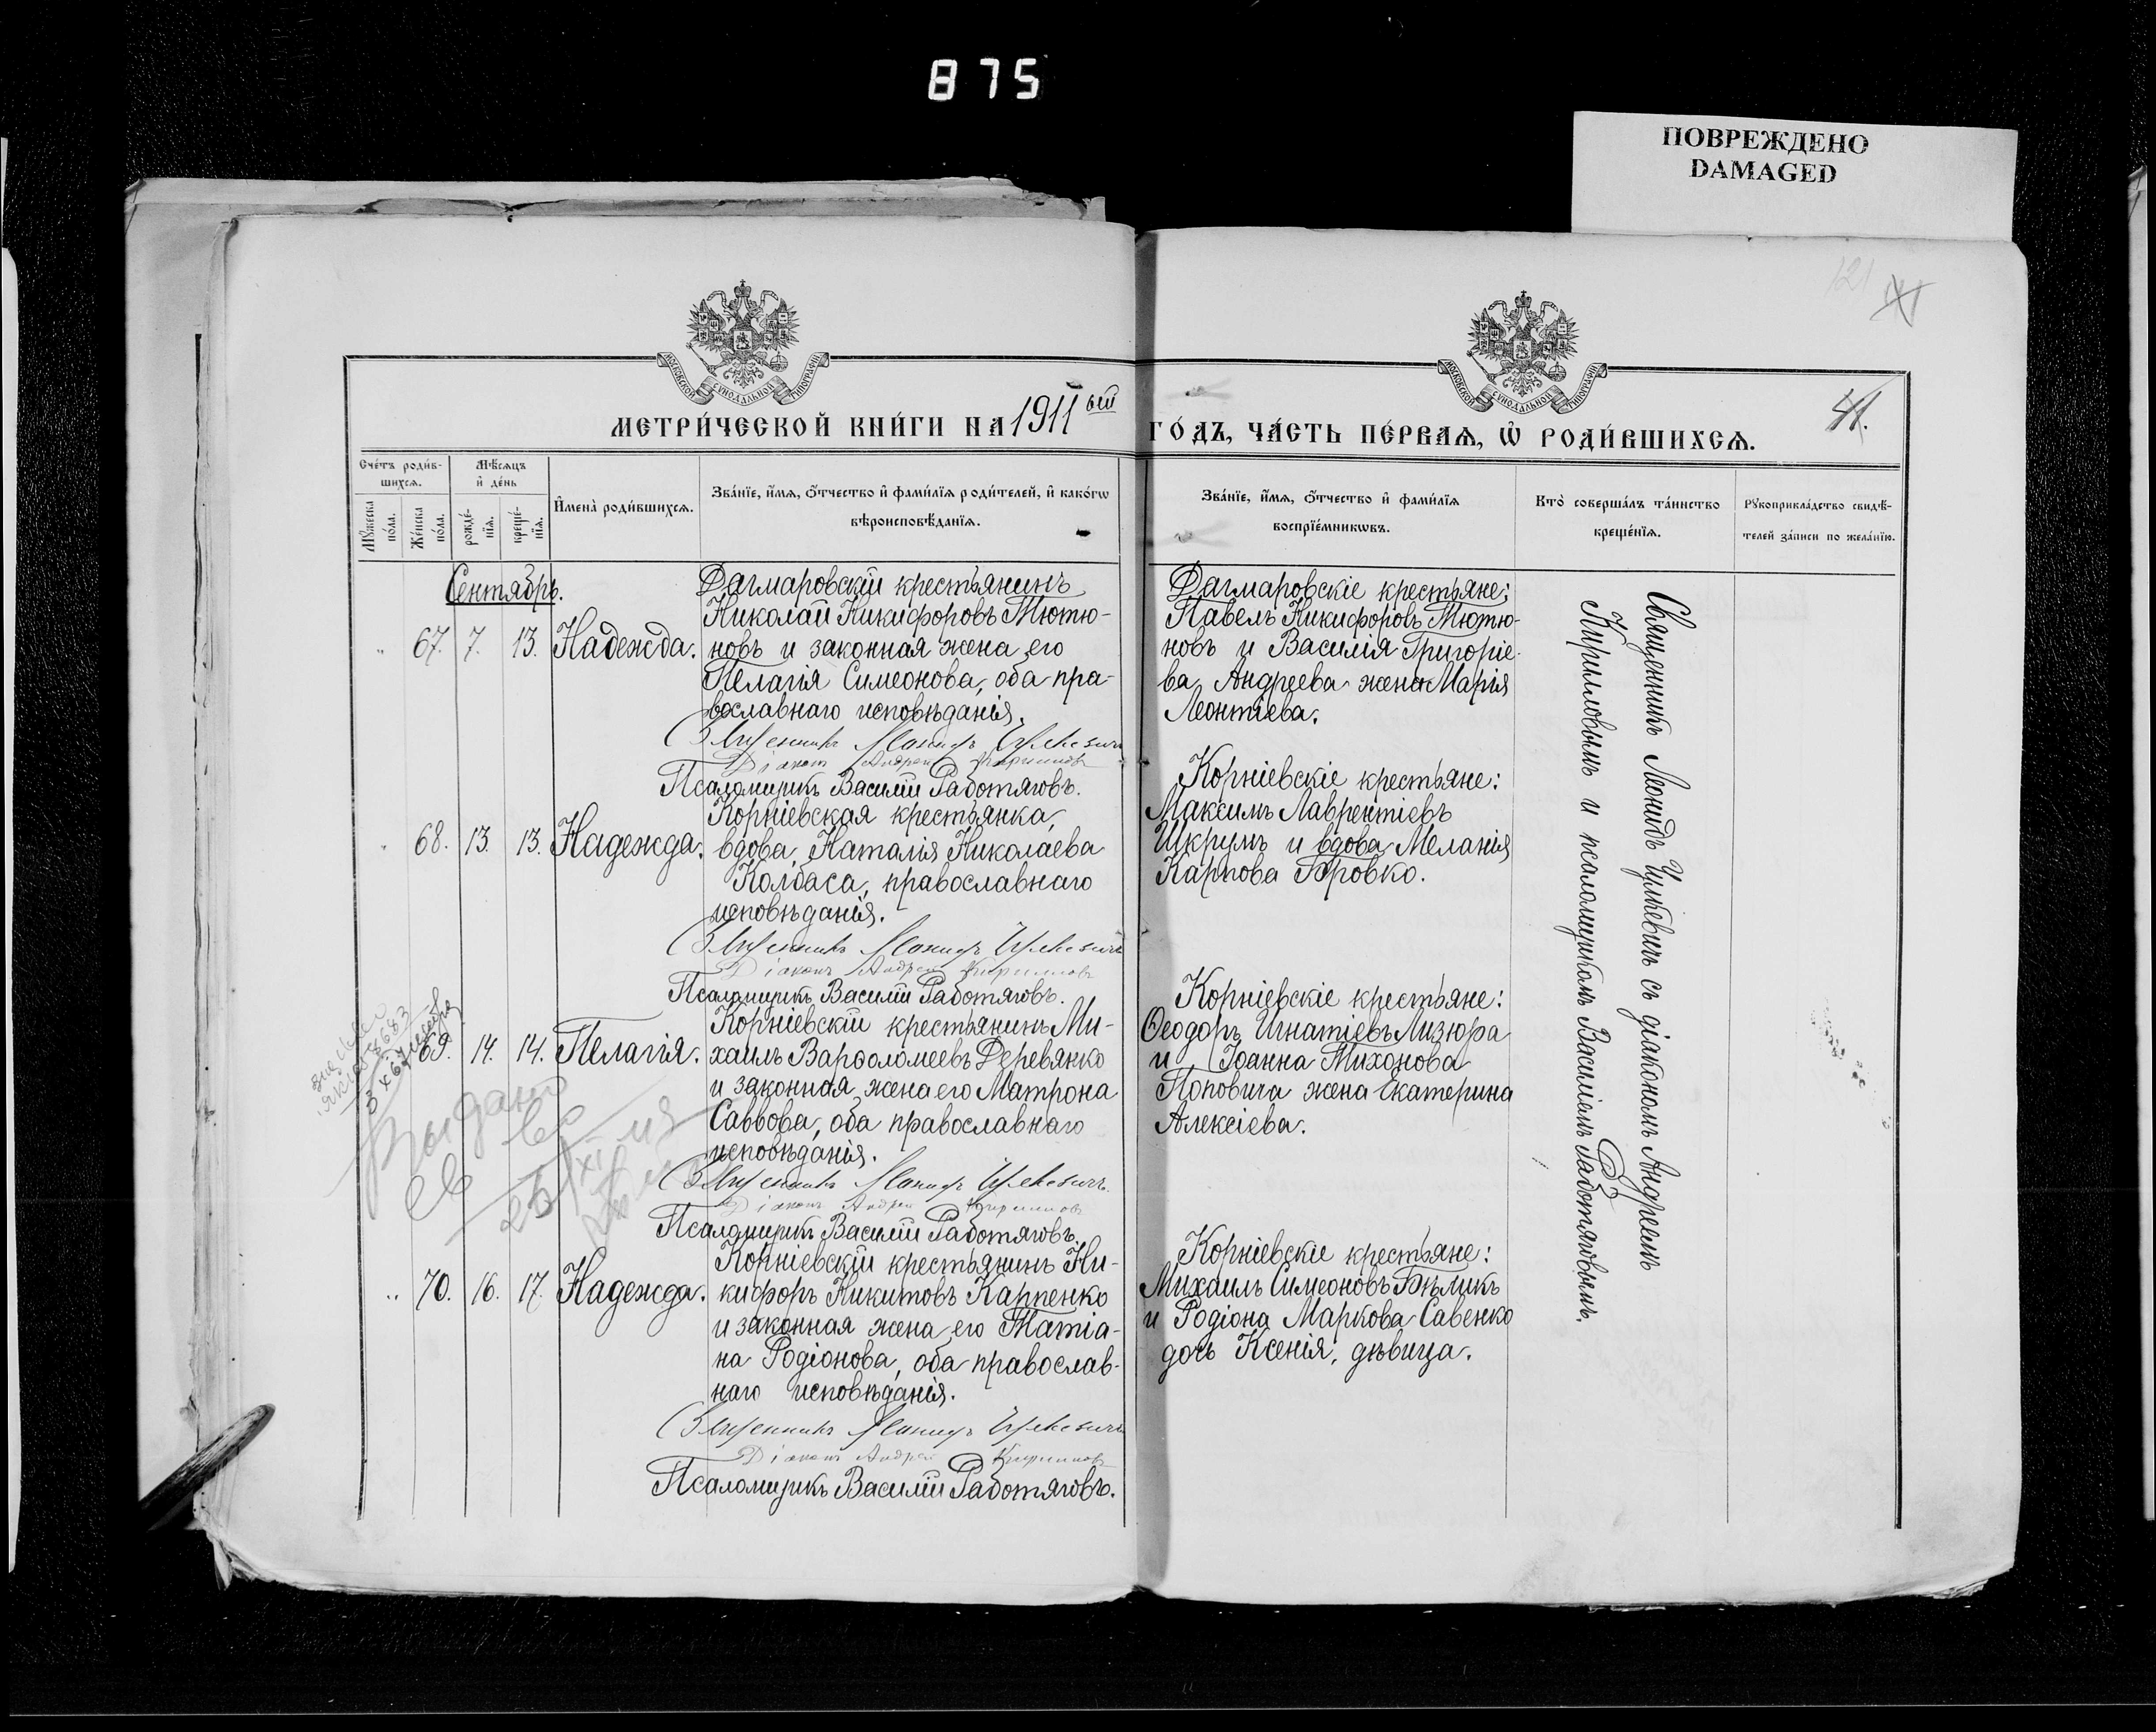 875
ПОВРЕЖДЕНО
DAMAGED
121
МОСКОВСКОЙ СУНОДАЛЬНОЙ ТИПОГРАФІИ
МОСКОВСКОЙ СУНОДАЛЬНОЙ ТИПОГРАФІИ
МЕТРИ́ЧЕСКОЙ КНИ́ГИ НА 1911ый ГО́ДЪ, ЧА́СТЬ ПЕ́РВАѦ, Ѡ҆ РОДИ́ВШИХСѦ.
41.
Сче́тъ роди́в-
шихсѧ.
Мѣ́сѧцъ
и҆ де́нь
Мꙋ́жеска
по́ла.
Же́нска
по́ла.
рожде́-
нїѧ.
креще́-
нїѧ.
И҆мена̀ роди́вшихсѧ.
Зва́нїе, и҆́мѧ, ѻ҆́тчество и҆ фами́лїѧ роди́телей, и҆ како́гѡ
вѣроисповѣ́данїѧ.
Зва́нїе, и҆́мѧ, ѻ҆́тчество и҆ фами́лїѧ
воспрїе́мникѡвъ.
Кто̀ соверша́лъ та́инство
креще́нїѧ.
Рꙋкоприкла́дство свидѣ́-
телей за́писи по жела́нїю.
Сентябрь.
67. 7. 13. Надежда.
Дагмаровскій крестьянинъ
Николай Никифоровъ Тютю-
новъ и законная жена его
Пелагія Симеонова, оба пра-
вославнаго исповѣданія.
Священникъ Леонидъ Цулкевичъ
Діаконъ Андрей Кирилловъ
Псаломщикъ Василій Работяговъ.
Дагмаровскіе крестьяне:
Павелъ Никифоровъ Тютю-
новъ и Василія Григоріе-
ва Андреева жена Марія
Леонтіева.
68. 13. 13. Надежда.
Корніевская крестьянка,
вдова, Наталія Николаева
Колбаса, православнаго
исповѣданія.
Священникъ Леонидъ Цулкевичъ
Діаконъ Андрей Кирилловъ
Псаломщикъ Василій Работяговъ.
Корніевскіе крестьяне:
Максимъ Лаврентіевъ
Шкрумъ и вдова Меланія
Карпова Бровко.
69. 14. 14. Пелагія.
Корніевскій крестьянинъ Ми-
хаилъ Варѳоломеевъ Деревянко
и законная жена его Матрона
Саввова, оба православнаго
исповѣданія.
Священникъ Леонидъ Цулкевичъ
Діаконъ Андрей Кирилловъ
Псаломщикъ Василій Работяговъ.
Корніевскіе крестьяне:
Ѳеодоръ Игнатіевъ Лизюра
и Іоанна Тихонова
Поповича жена Екатерина
Алексіева.
Выдано
св во
25/XI
70. 16. 17. Надежда.
Корніевскій крестьянинъ Ни-
кифоръ Никитовъ Карпенко
и законная жена его Татіа-
на Родіонова, оба православ-
наго исповѣданія.
Священникъ Леонидъ Цулкевичъ
Діаконъ Андрей Кирилловъ
Псаломщикъ Василій Работяговъ.
Корніевскіе крестьяне:
Михаилъ Симеоновъ Бѣликъ
и Родіона Маркова Савенко
дочь Ксенія, дѣвица.
Священникъ Леонидъ Цулкевичъ съ діакономъ Андреемъ
Кирилловымъ и псаломщикомъ Василіемъ Работяговымъ.